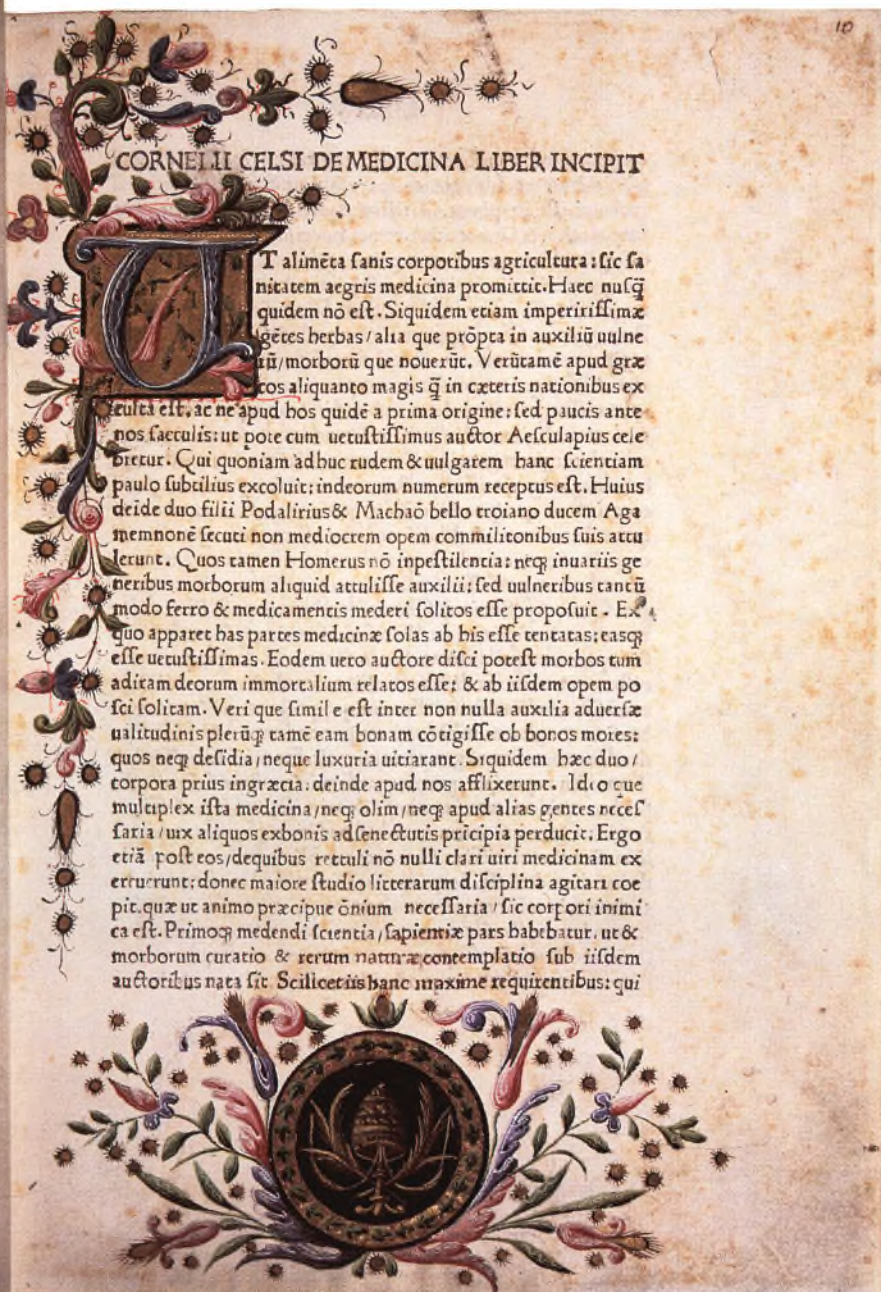 10
CORNELII CELSI DE MEDICINA LIBER INCIPIT
UT alimēta ſanis corporibus agricultura: ſic ſa
nitatem aegris medicina promittit. Haec nuſq̄
quidem nō eſt. Siquidem etiam imperitiſſimæ
gētes herbas/ alia que prōpta in auxiliū uulne
rū/ morborū que nouerūt. Verūtamē apud græ
cos aliquanto magis q̄ in cæteris nationibus ex
culta eſt. ac ne apud hos quidē a prima origine: ſed paucis ante
nos ſaeculis: ut pote cum uetuſtiſſimus auctor Aeſculapius cele
bretur. Qui quoniam adhuc rudem & uulgarem hanc ſcientiam
paulo ſubtilius excoluit: indeorum numerum receptus eſt. Huius
deīde duo filii Podalirius & Machaō bello troiano ducem Aga
memnonē ſecuti non mediocrem opem commilitonibus ſuis attu
lerunt. Quos tamen Homerus nō inpeſtilentia: neqꝫ inuariis ge
neribus morborum aliquid attuliſſe auxilii: ſed uulneribus tantū
modo ferro & medicamentis mederi ſolitos eſſe propoſuit. Ex
quo apparet has partes medicinæ ſolas ab his eſſe tentatas: easqꝫ
eſſe uetuſtiſſimas. Eodem uero auctore diſci poteſt morbos tum
adiram deorum immortalium relatos eſſe: & ab iiſdem opem po
ſci ſolitam. Veri que ſimile eſt inter non nulla auxilia aduerſæ
ualitudinis plerūqꝫ tamē eam bonam cōtigiſſe ob bonos mores:
quos neqꝫ deſidia/ neque luxuria uitiarant. Siquidem hæc duo/
corpora prius ingræcia: deinde apud nos afflixerunt. Ideo que
multiplex iſta medicina/ neqꝫ olim/ neqꝫ apud alias gentes neceſ
ſaria/ uix aliquos exbonis adſenectutis prīcipia perducit. Ergo
etiā poſt eos/ dequibus rettuli nō nulli clari uiri medicinam ex
ercuerunt: donec maiore ſtudio litterarum diſciplina agitari coe
pit. quæ ut animo præcipue ōnium neceſſaria/ ſic corpori inimi
ca eſt. Primoqꝫ medendi ſcientia/ ſapientiæ pars habebatur. ut &
morborum curatio & rerum naturæ contemplatio ſub iiſdem
auctoribus nata ſit Scilicet iis hanc maxime requirentibus: qui